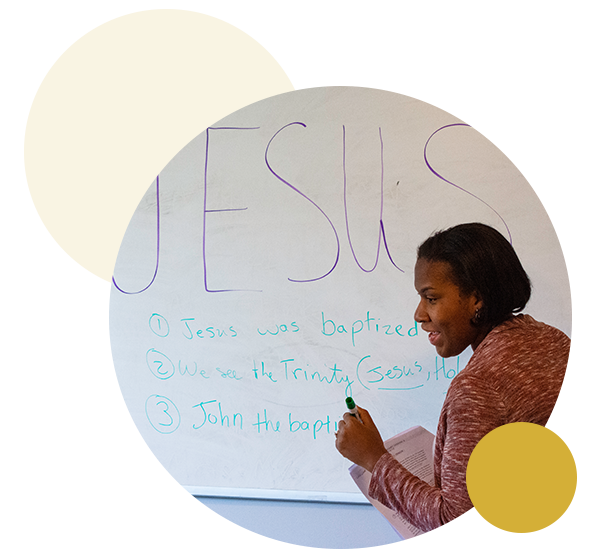 JESUS
① Jesus was baptized
② We see the Trinity (Jesus, Hol
③ John the bapti